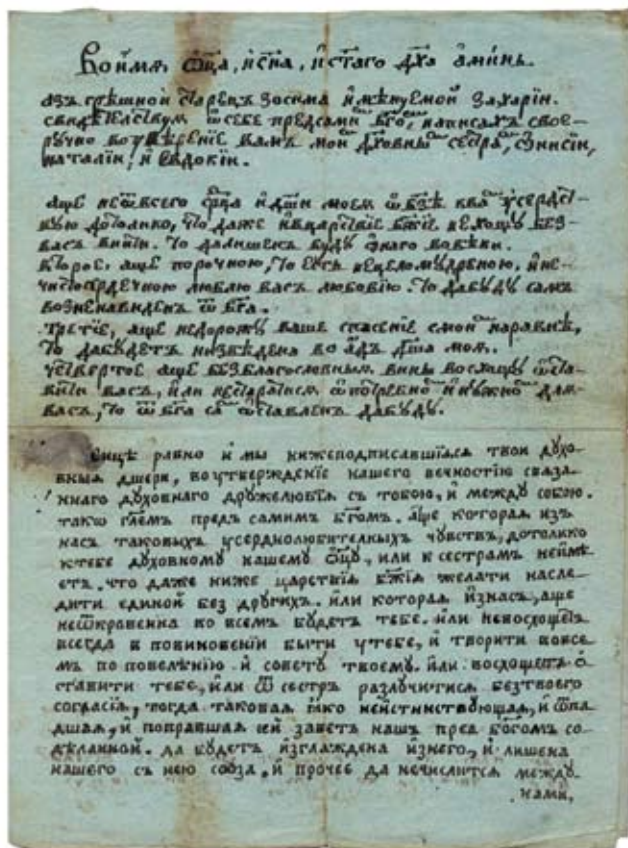 Во имя, ѿца, и сна, и стаго дха аминь.
Азъ грѣшной старецъ Зосима именуемой Захарии.
Свидѣтелствую ѿ себе предсамим бгомъ, написахъ свое-
ручно во увѣрение вамъ моим дховным сестрам, Анисии,
Наталии, и Евдокии.
Аще не ѿ всего срца и дши моем ѿ бзѣ к вам усердст-
вую дотолико, что даже и в царствие бжие не хощу без
васъ внити. то да лишенъ буду онаго вовѣки.
Второе, аще порочною, то есть нецеломудреною, и не-
чистосердечною люблю васъ любовию. то да буду самъ
возненавиденъ ѿ бга.
Третие, аще недорожу ваше спасение с моим наравнѣ,
то да будетъ низведена во адъ дша моя.
Четвертое аще безблагословныя вины восхощу оста-
вити васъ, или не старатися о потребном и нужном для
васъ, то ѿ бга сам оставленъ да буду.
Сице равно и мы нижеподписавшіяся твои духо-
вныя дщери, во утвержденіе нашего вечностію связа-
ннаго духовнаго дружелюбія съ тобою, и между собою.
такѡ глемъ предъ самимъ бгомъ. аще которая изъ
насъ таковыхъ усерднолюбителныхъ чувствъ, дотолико
к тебе духовному нашему ѿцу, или к сестрам неимѣ
етъ. что даже ниже царствия бжия желати насле-
дити единой без другихъ. или которая изнасъ, аще
неѿкравенна во всемъ будетъ тебе. или невосхощетъ
всегда в повиновении быти у тебе, и творити вовсе-
мъ по повелѣнию и совету твоему. или восхощетъ о
ставити тебе, или ѿ сестръ разлучитися безтвоего
согласия, тогда таковая яко неистинствующая, и ѿпа
дшая, и поправшая сей заветъ нашъ пред богомъ со-
дѣланной. да будетъ изглаждена изнего, и лишена
нашего съ нею союза. и прочее да нечислится между
нами.